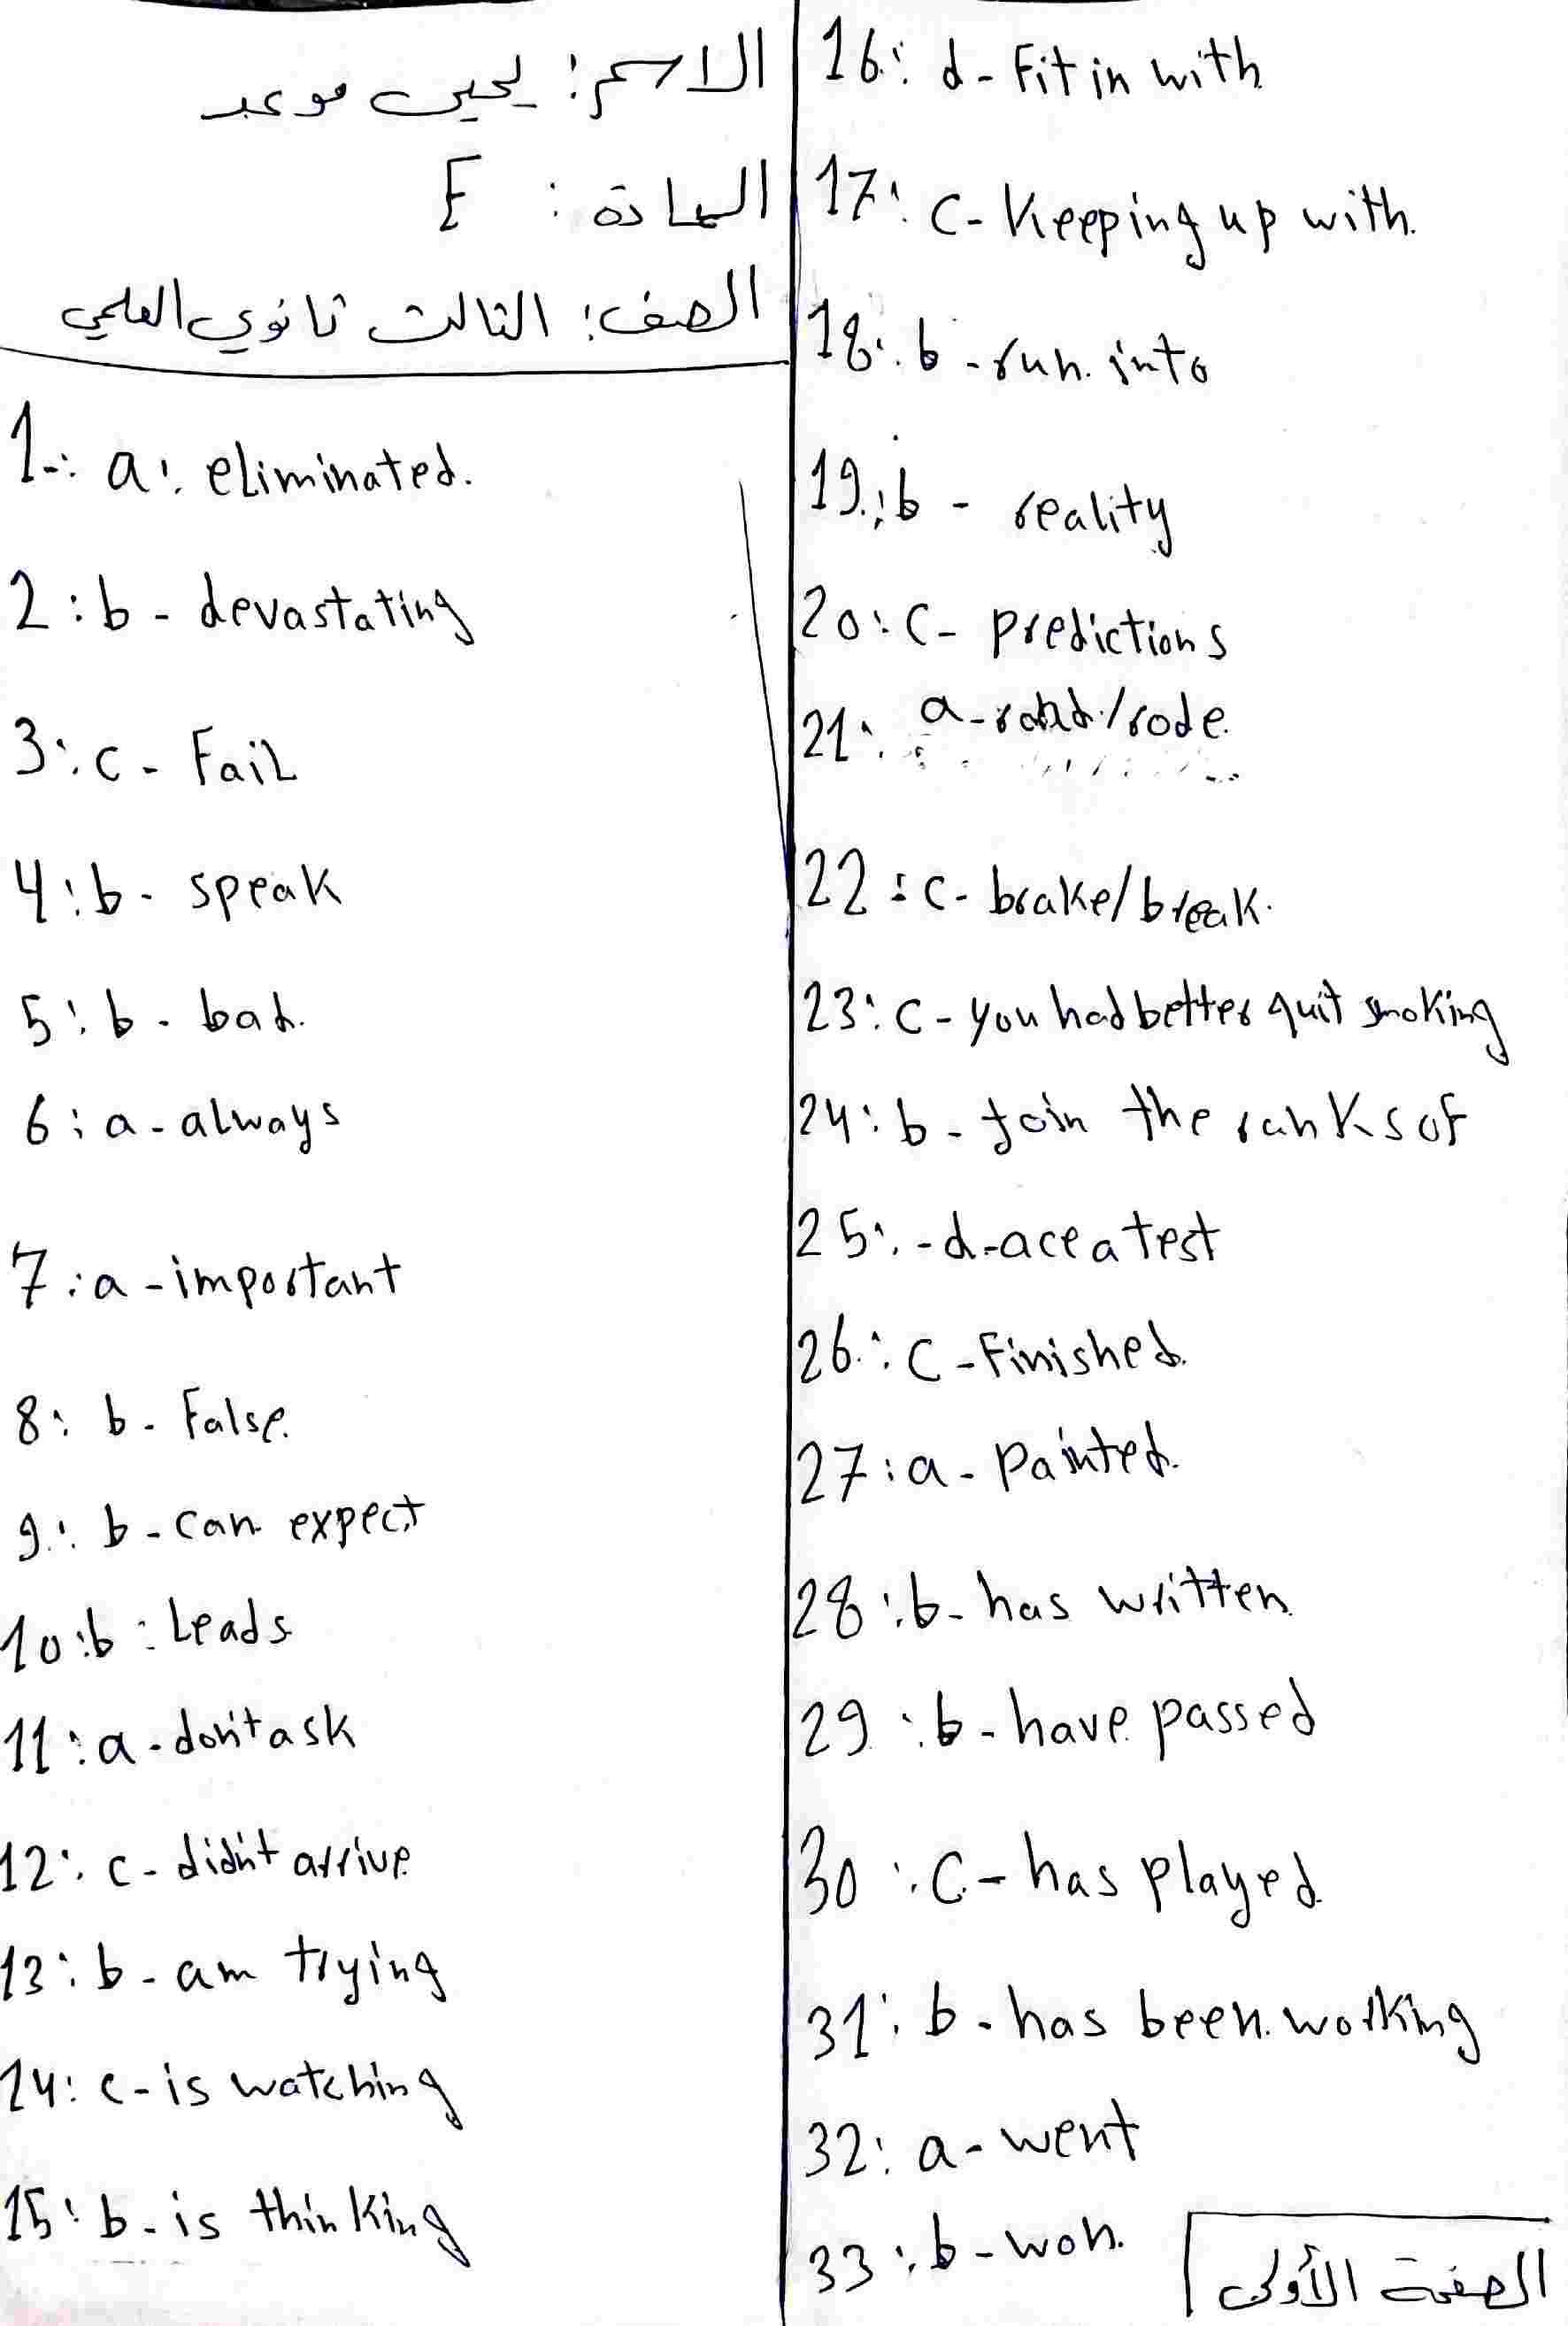 الاسم: يحيى موعد
المادة: E
الصف: الثالث ثانوي العلمي
1-: a: eliminated.
2: b - devastating
3: c - Fail
4: b - speak
5: b - bad.
6: a - always
7: a - important
8: b - False.
9: b - can expect
10: b: Leads
11: a - don't ask
12: c - didn't arrive
13: b - am trying
14: c - is watching
15: b - is thinking
16: d - Fit in with
17: c - Keeping up with.
18: b - run into
19: b - reality
20: c - predictions
21: a - /rode.
22: c - brake/break.
23: c - you had better quit smoking
24: b - join the ranks of
25: - d - ace a test
26: c - Finished.
27: a - painted.
28: b - has written
29: b - have passed
30: c - has played
31: b - has been working
32: a - went
33: b - won.
الصفحة الأولى